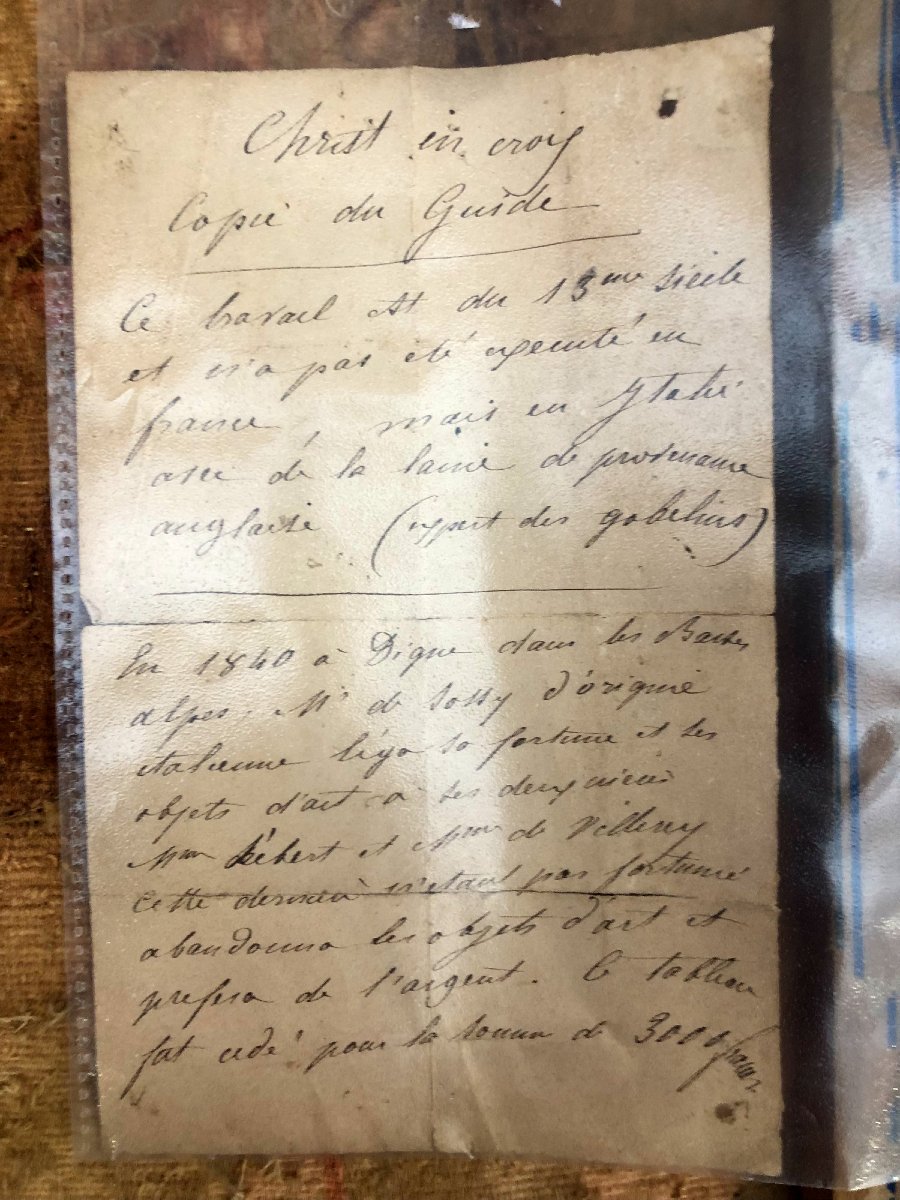 Christ en croix
Copie du Guide
Ce travail est du 13me siècle
et n'a pas été executé en
france, mais en Ytalie
avec de la laine de provenance
anglaise (expert des gobelins)
En 1840 à Digne dans les Basses
alpes, Mr de d'origine
italienne légo sa fortune et ses
objets d'art a ses deux nièces
Mme Hébert et Mme de Villeny
cette dernière n'étant pas fortunée
abandonna les objets d'art et
prefera de l'argent. Ce tableau
fut cedé pour la somme de 3000 francs